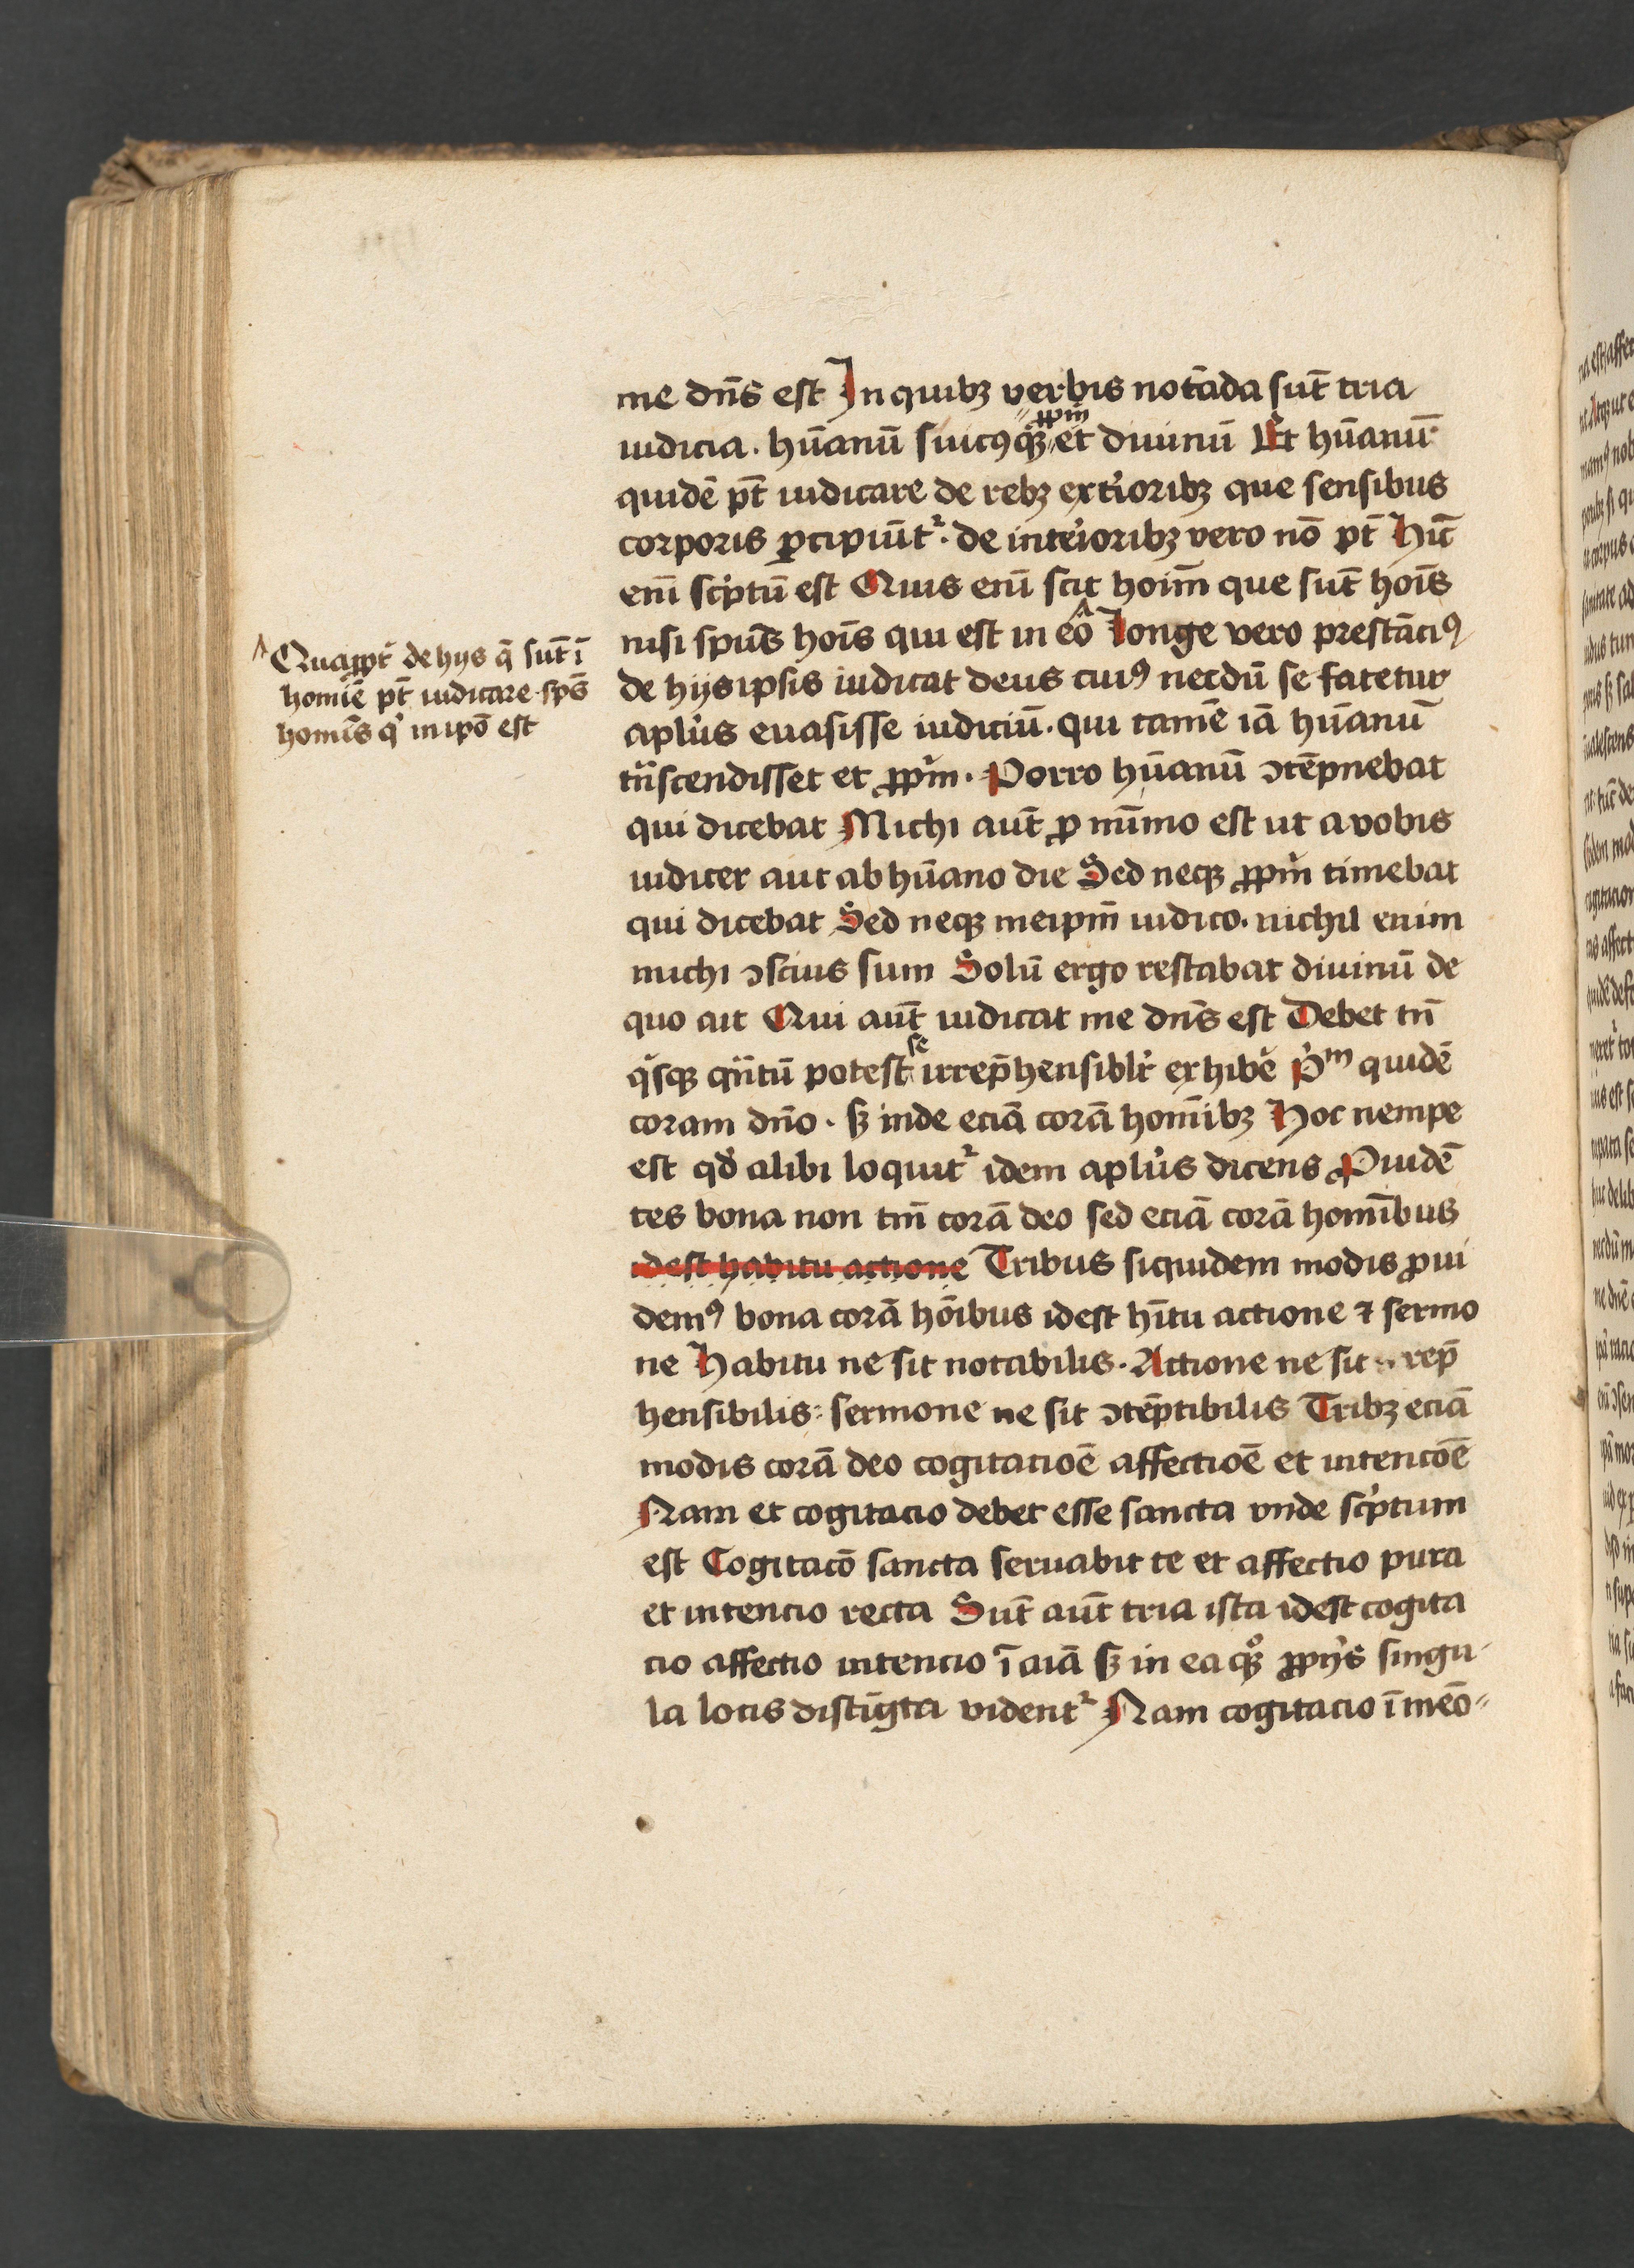 me dn̄s est In quibꝫ verbis notāda sūt tria
iudicia. hūanū suicꝰqꝫ ꝓpͥm et diuinū Et hūanū
quidē pt̄ iudicare de rebꝫ exťioribꝫ que sensibus
corporis ꝑcipiūtᷣ. de inťioribꝫ vero nō pt̄ Hīc
em̄ scͥptū est Quis em̄ scit hoim̄ que sūt hoīs
nisi spūs hoīs qui est in eo ^ longe vero prestāciꝰ
^ Quaꝓpť de hijs q̄ sūt ī
homīe pt̄ iudicare spūs
homīs qͥ in ipō est
de hijs ipsis iudicat deus cuiꝰ necdū se fatetur
aplūs euasisse iudiciū. qui tamē iā hūanū
tᷓnscendisset et ꝓpͥm. Porro hūanū ꝯtēpnebat
qui dicebat Michi aūt ꝓ mīmo est ut a vobis
iudicer aut ab hūano die Sed neqꝫ ꝓpͥm timebat
qui dicebat Sed neqꝫ meipm̄ iudico. nichil enim
michi ꝯscius sum Solū ergo restabat diuinū de
quo ait Qui aūt iudicat me dn̄s est Debet tn̄
qͥsqꝫ qᷓntū potest se irrep̄hensiblͥr exhibē Pͥᵐ quidē
coram dn̄o. sꝫ inde eciā corā homībꝫ Hoc nempe
est qď alibi loquitᷣ idem aplūs dicens Ꝓuidē
tes bona non tm̄ corā deo sed eciā corā homībus
idest habitu actione Tribus siquidem modis ꝓui
demꝰ bona corā hōibus idest hītu actione ⁊ sermo
ne Habitu ne sit notabilis. Actione ne sit rep̄
hensibilis: sermone ne sit ꝯtēptibilis Tribꝫ eciā
modis corā deo cogitatioē affectioē et intencōe
Nam et cogitacio debet esse sancta vnde scͥptum
est Cogitacō sancta seruabit te et affectio pura
et intencio recta Sūt aūt tria ista idest cogita
cio affectio intencio ī aiā sꝫ in ea qꝫͦ ꝓpͥjs singu
la locis distīgta videntᷣ Nam cogitacio ī mēo⸗